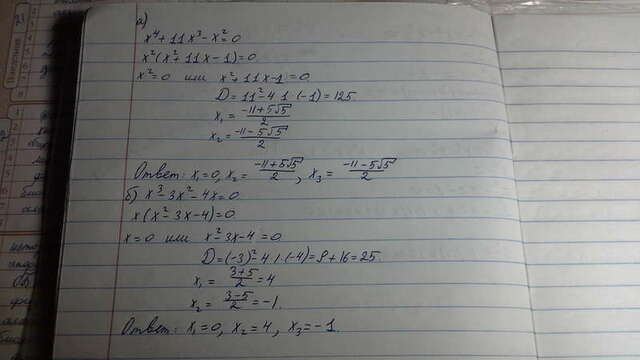 а)
x⁴+11x³-x²=0
x²(x²+11x-1)=0
x²=0 или x²+11x-1=0
D=11²-4·1·(-1)=125
x₁=(-11+5√5)/2
x₂=(-11-5√5)/2
Ответ: x₁=0, x₂=(-11+5√5)/2, x₃=(-11-5√5)/2
б) x³-3x²-4x=0
x(x²-3x-4)=0
x=0 или x²-3x-4=0
D=(-3)²-4·1·(-4)=9+16=25
x₁=(3+5)/2=4
x₂=(3-5)/2=-1.
Ответ: x₁=0, x₂=4, x₃=-1.